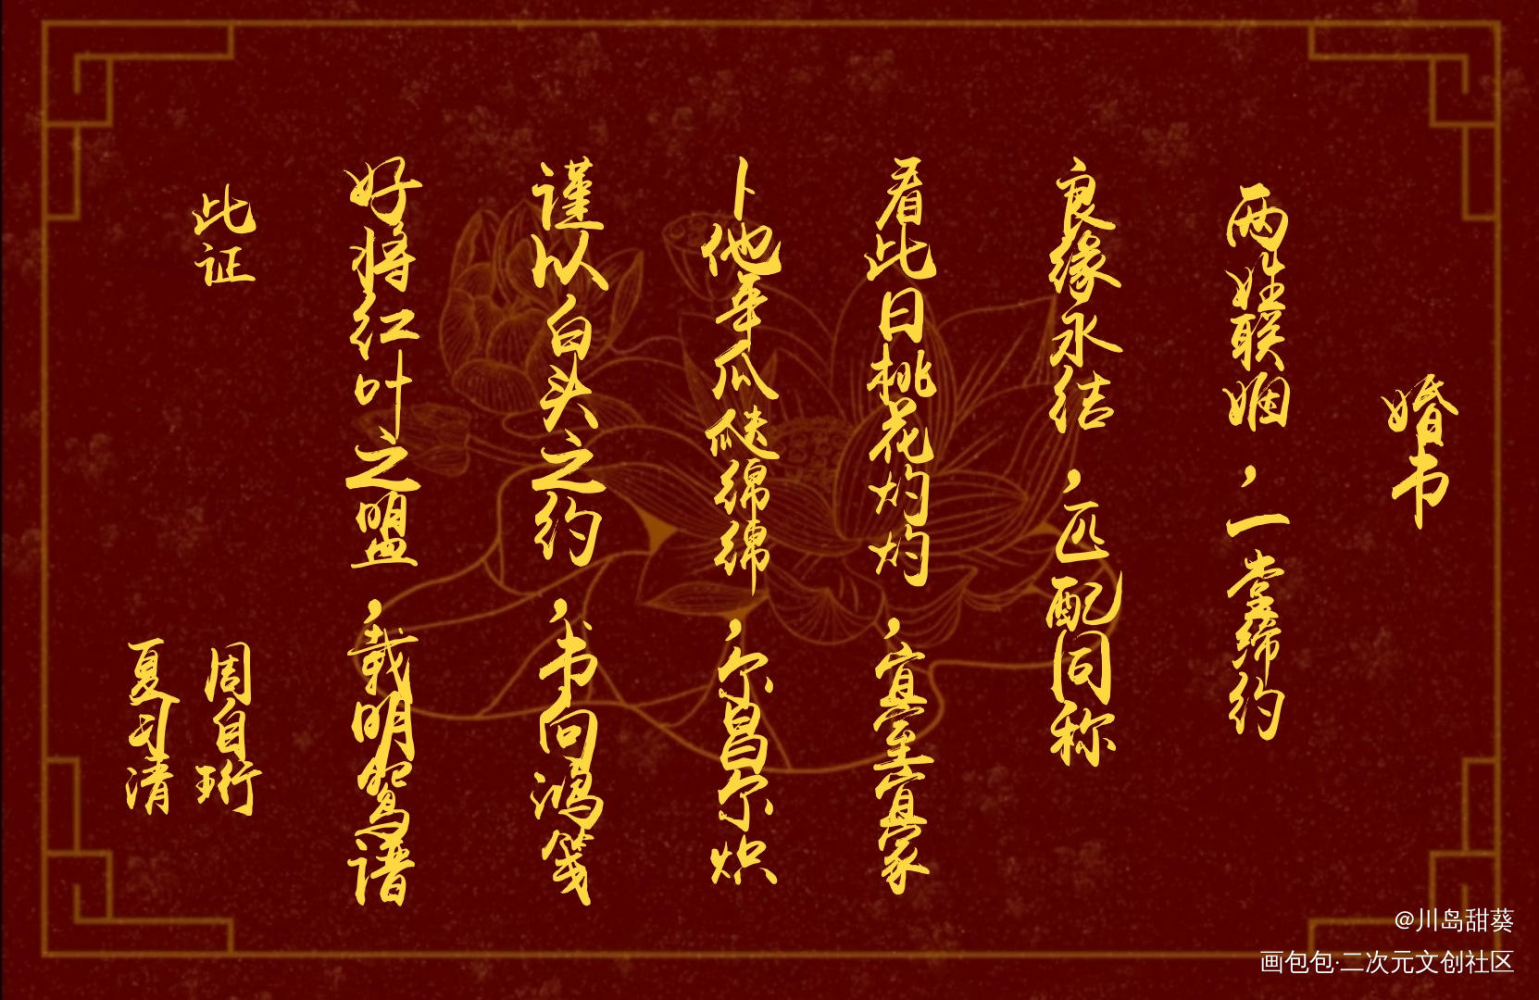 婚书
两姓联姻，一堂缔约
良缘永结，匹配同称
看此日桃花灼灼，宜室宜家
卜他年瓜瓞绵绵，尔昌尔炽
谨以白头之约，书向鸿笺
好将红叶之盟，载明鸳谱
此证
周自珩
夏习清
@川岛甜葵
画包包·二次元文创社区